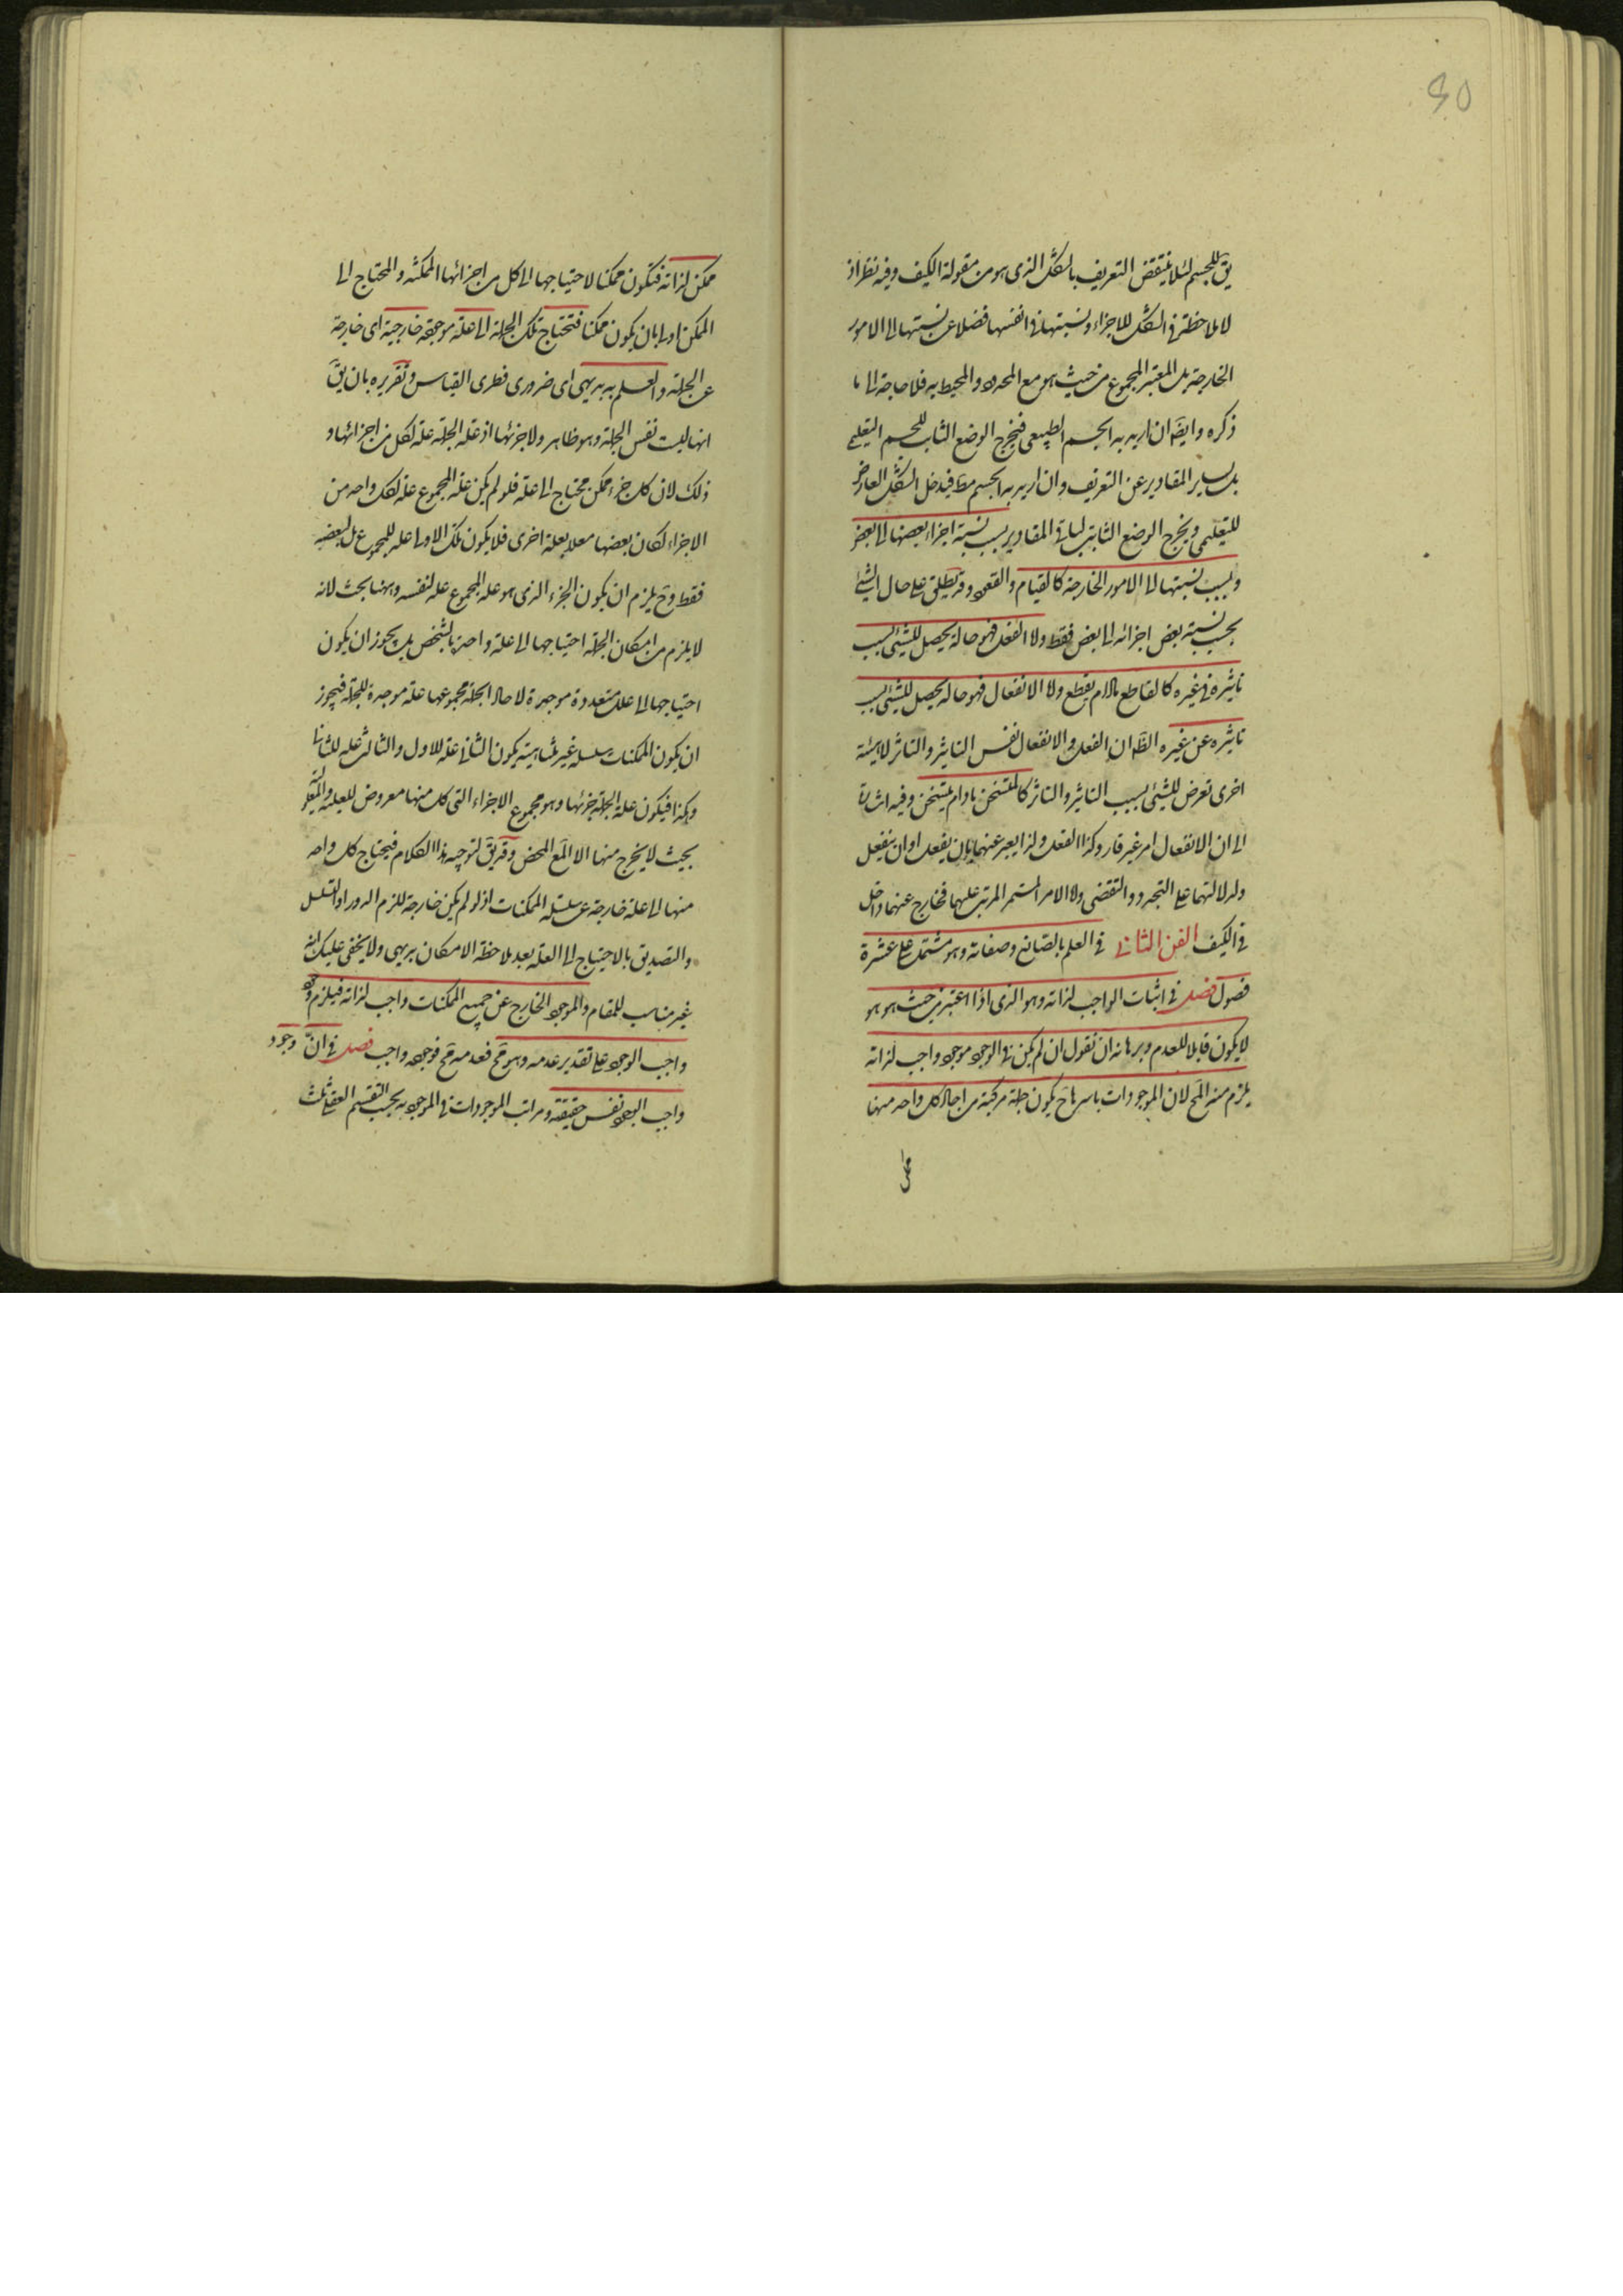 50
يق للجسم لئلا ينتقض التعريف بالشكل الذى هو من مقولة الكيف وفيه نظر اذ
لا ملاحظة فى الشكل للاجزاء ونسبتها فى انفسها فضلا عن نسبتها الى الامور
الخارجة بل المعتبر المجموع من حيث هو مع المحدود والمحيط به فلا حاجة الى ما
ذكره وايضا ان اريد به الجسم الطبيعى فيخرج الوضع الثابت للجسم التعليمى
بل لساير المقادير عن التعريف وان اريد به الجسم مط فيدخل الشكل العارض
للتعليمى ويخرج الوضع الثابت لباقى المقادير بسبب نسبة اجزاء بعضها الى بعض
وبسبب نسبتها الى الامور الخارجة كالقيام والقعود وقد يطلق على حال الشئ
بحسب نسبة بعض اجزائه الى بعض فقط ولا الفعل فهو حالة يحصل للشئ بسبب
تاثيره فى غيره كالقاطع مادام يقطع ولا الانفعال فهو حالة يحصل للشئ بسبب
تاثيره عن غيره الظ ان الفعل والانفعال نفس التاثير والتاثر لا هيئة
اخرى تعرض للشئ بسبب التاثير والتاثر كالمتسخن مادام يتسخن وفيه اشارة
الى ان الانفعال امر غير قار وكذا الفعل ولذا يعبر عنهما بان يفعل او ان ينفعل
ولدلالتهما على التجدد والتقضى ولا الامر المستمر المرتب عليهما فخارج عنهما داخل
فى الكيف الفن الثانى فى العلم بالصانع وصفاته وهو مشتمل على عشرة
فصول فصل فى اثبات الواجب لذاته وهو الذى اذا اعتبر من حيث هو هو
لا يكون قابلا للعدم وبرهانه ان نقول ان لم يكن فى الوجود موجود واجب لذاته
يلزم منه المح لان الموجودات باسرها ح يكون جملة مركبة من احاد كل واحد منها
ممكن لذاته فتكون ممكنا لاحتياجها الى كل من اجزائها الممكنة والمحتاج الى
الممكن اولى بان يكون ممكنا فتحتاج تلك الجملة الى علة موجدة خارجية اى خارجة
عن الجملة والعلم به بديهى اى ضرورى فطرى القياس وتقريره بان يق
انها ليست نفس الجملة وهو ظاهر ولا جزئها اذ علة الجملة علة لكل من اجزائها و
ذلك لان كل جزء ممكن محتاج الى علة فلو لم يكن علة المجموع علة لكل واحد من
الاجزاء لكان بعضها معللا بعلة اخرى فلا يكون تلك الاولى علة للمجموع بل لبعضه
فقط وح يلزم ان يكون الجزء الذى هو علة المجموع علة لنفسه وههنا بحث لانه
لا يلزم من امكان الجملة احتياجها الى علة واحدة بالشخص بل يجوز ان يكون
احتياجها الى علل متعددة موجدة لاحاد الجملة مجموعها علة موجدة للجملة فيجوز
ان يكون الممكنات سلسلة غير متناهية يكون الثانى علة للاول والثالث علة للثانى
وهكذا فيكون علة الجملة جزئها وهو مجموع الاجزاء التى كل منها معروض للعلية والمعلولية
بحيث لا يخرج منها الا المع المحض وقد يق لتوجيه هذا الكلام فيحتاج كل واحد
منها الى علة خارجة عن سلسلة الممكنات اذ لو لم يكن خارجة للزم الدور او التسلسل
والتصديق بالاحتياج الى العلة بعد ملاحظة الامكان بديهى ولا يخفى عليك انه
غير مناسب للمقام والموجود الخارج عن جميع الممكنات واجب لذاته فيلزم وجود
واجب الوجود على تقدير عدمه وهو مح فعدمه مح فوجوده واجب فصل فى ان وجود
واجب الوجود نفس حقيقته ومراتب الموجودات فى الموجودية بحسب التقسيم العقلى ثلث